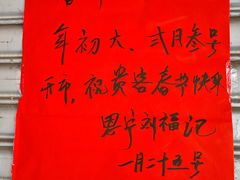 年初六、贰月叁号
开市，祝贵客春节快乐
恩宁刘福记
一月二十五号